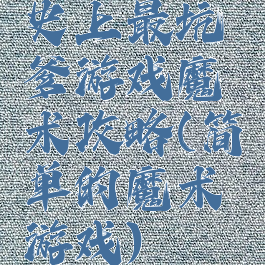 史上最坑
爹游戏魔
术攻略(简
单的魔术
游戏)